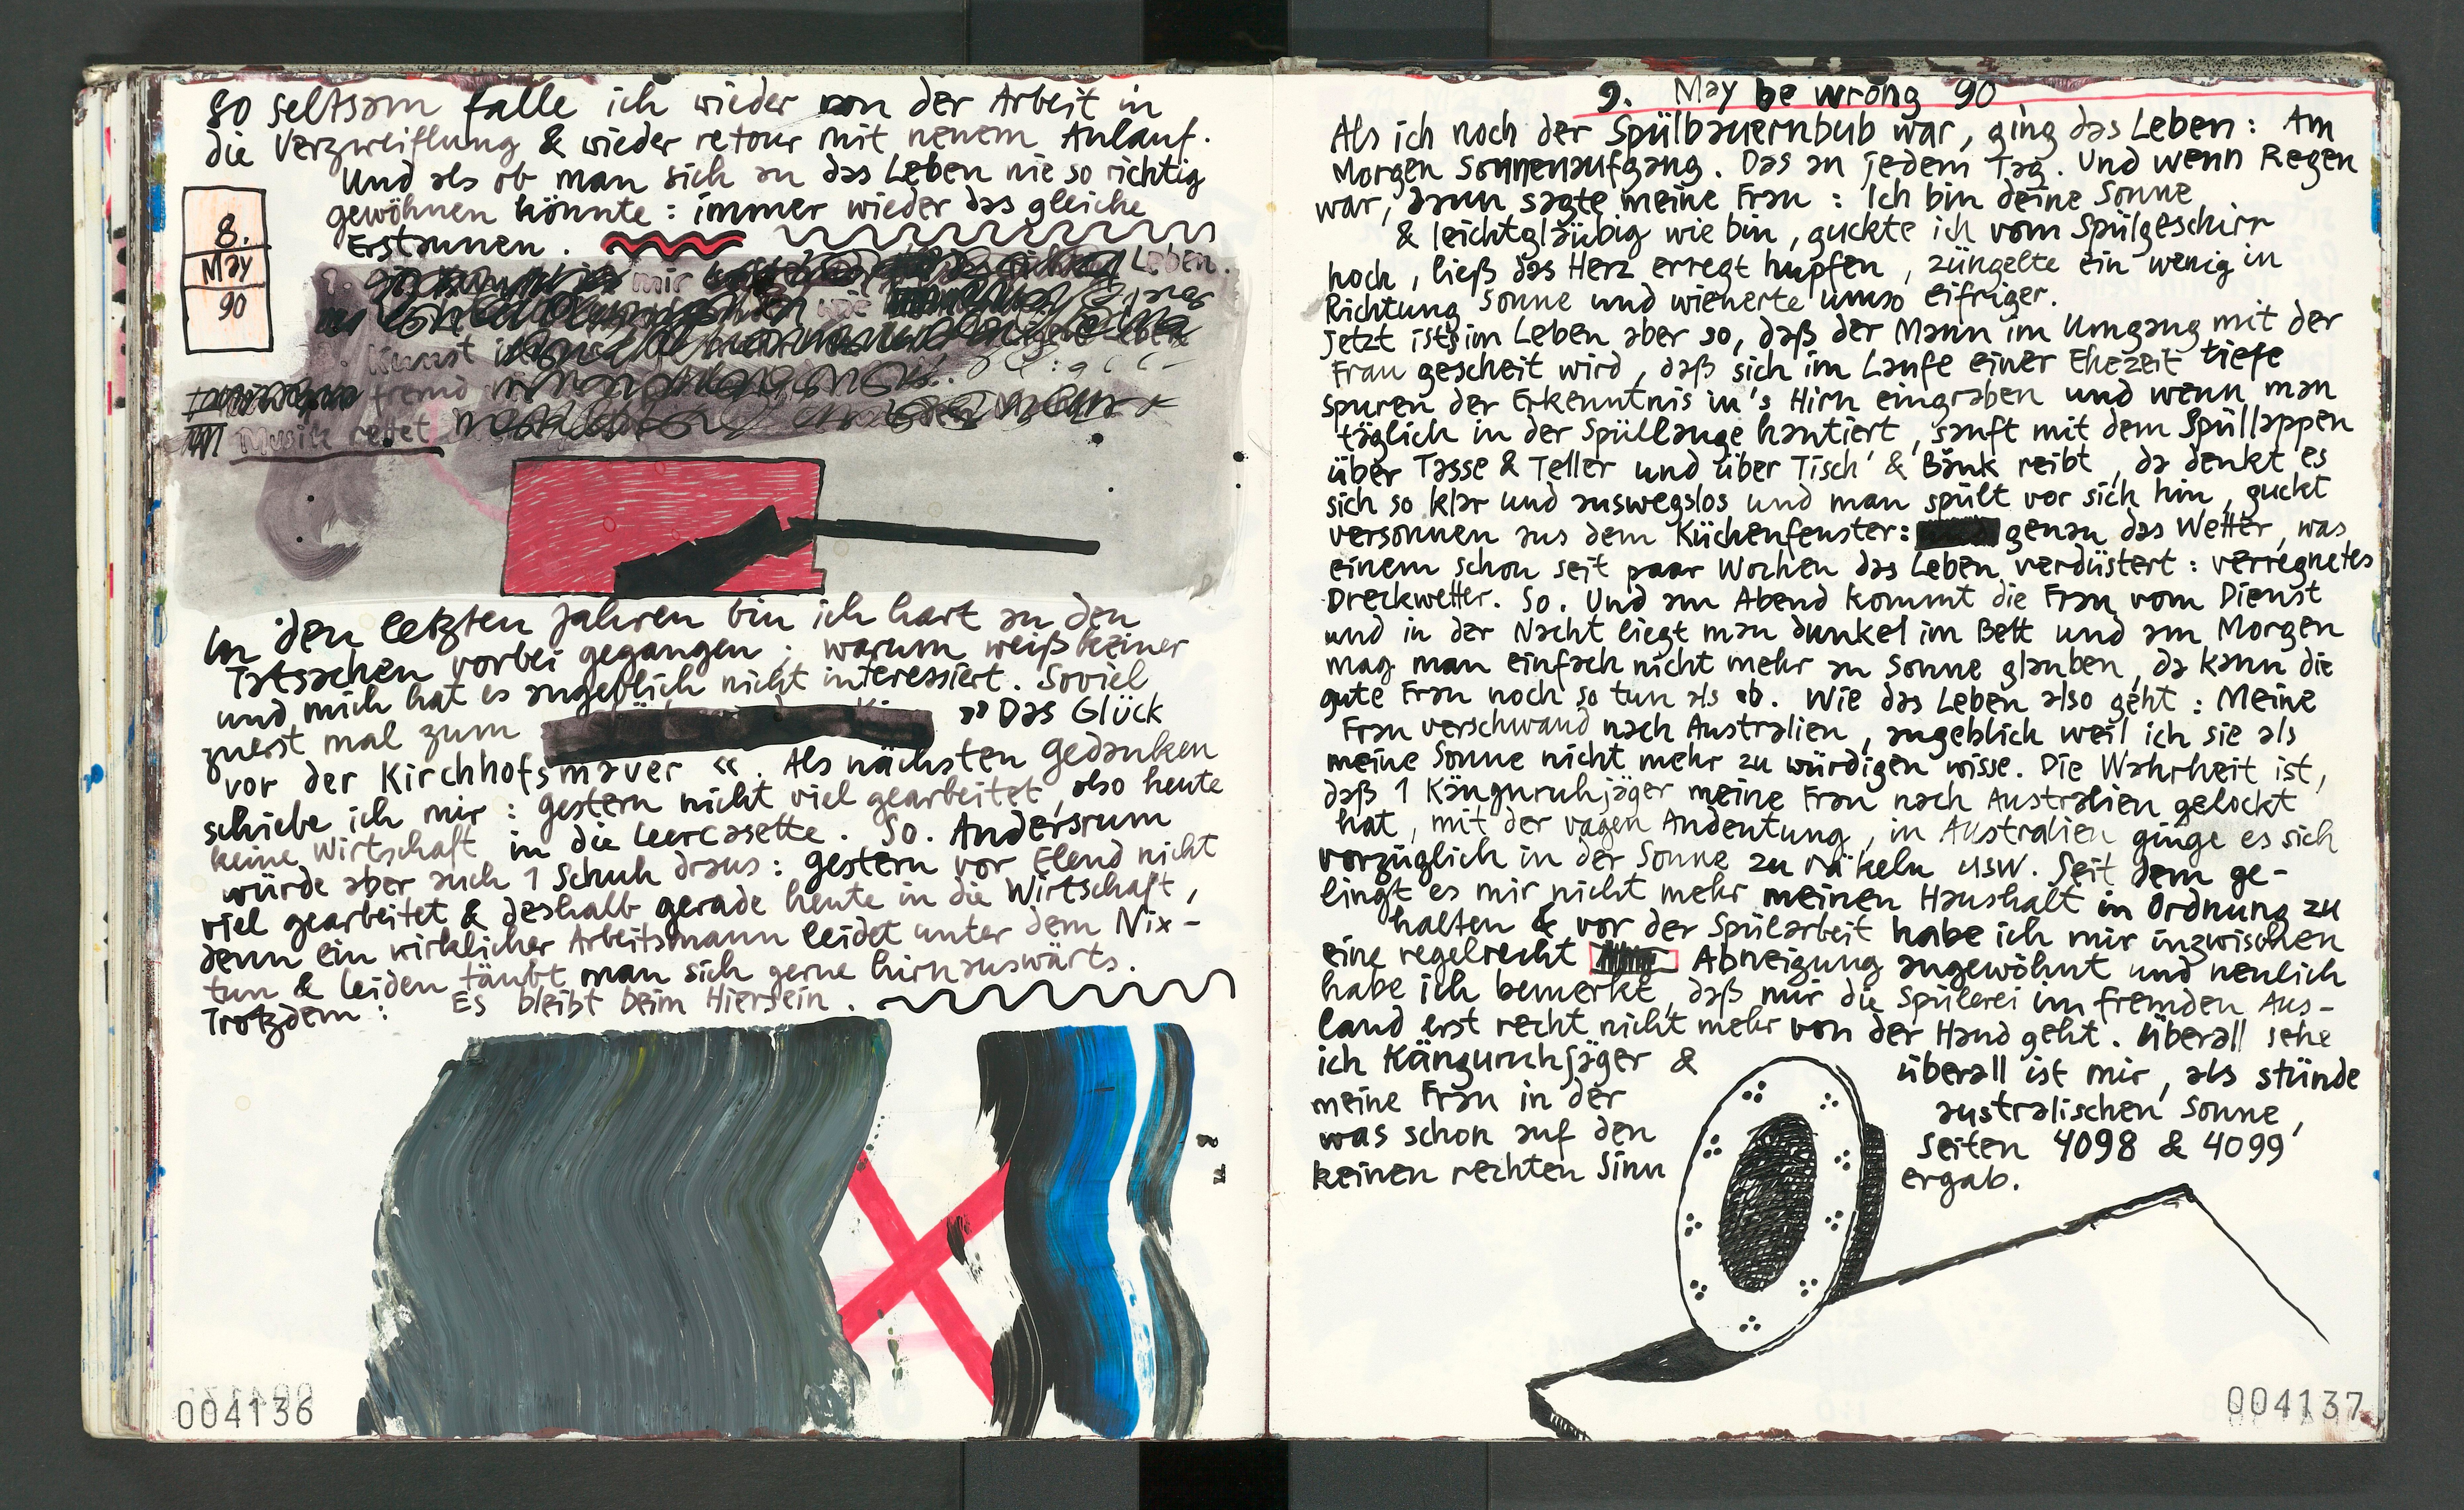 So seltsam falle ich wieder von der Arbeit in
die Verzweiflung & wieder retour mit neuem Anlauf.
Und als ob man sich an das Leben nie so richtig
gewöhnen könnte : immer wieder das gleiche
Erstaunen .
8.
May
90
mir Leben.
wie
Kunst
fremd
Musik rettet
In den letzten Jahren bin ich hart an den
Tatsachen vorbei gegangen ; warum weiß keiner
und mich hat es angeblich nicht interessiert. Soviel
zuerst mal zum »Das Glück
vor der Kirchhofsmauer «. Als nächsten Gedanken
schiebe ich mir : gestern nicht viel gearbeitet, also heute
keine Wirtschaft in die Leercasette . So. Andersrum
würde aber auch 1 Schuh draus : gestern vor Elend nicht
viel gearbeitet & deshalb gerade heute in die Wirtschaft,
denn ein wirklicher Arbeitsmann leidet unter dem Nix-
tun & leiden täubt man sich gerne hirnauswärts.
Trotzdem : Es bleibt beim Hiersein .
004136
9. May be wrong 90
Als ich noch der Spülbauernbub war, ging das Leben : Am
Morgen Sonnenaufgang. Das an jedem Tag. Und wenn Regen
war, dann sagte meine Frau : Ich bin deine Sonne
& leichtgläubig wie bin, guckte ich vom Spülgeschirr
hoch, ließ das Herz erregt hupfen, züngelte ein wenig in
Richtung Sonne und wieherte umso eifriger.
Jetzt ists im Leben aber so, daß der Mann im Umgang mit der
Frau gescheit wird, daß sich im Laufe einer Ehezeit tiefe
Spuren der Erkenntnis in's Hirn eingraben und wenn man
täglich in der Spüllauge hantiert, sanft mit dem Spüllappen
über Tasse & Teller und über Tisch & Bänk reibt, da denkt es
sich so klar und auswegslos und man spült vor sich hin, guckt
versonnen aus dem Küchenfenster: genau das Wetter, was
einem schon seit paar Wochen das Leben verdüstert : verregnetes
Dreckwetter. So. Und am Abend kommt die Frau vom Dienst
und in der Nacht liegt man dunkel im Bett und am Morgen
mag man einfach nicht mehr an Sonne glauben, da kann die
gute Frau noch so tun als ob. Wie das Leben also geht : Meine
Frau verschwand nach Australien, angeblich weil ich sie als
meine Sonne nicht mehr zu würdigen wisse. Die Wahrheit ist,
daß 1 Känguruhjäger meine Frau nach Australien gelockt
hat, mit der vagen Andeutung, in Australien ginge es sich
vorzüglich in der Sonne zu räkeln usw. Seit dem ge-
lingt es mir nicht mehr meinen Haushalt in Ordnung zu
halten & vor der Spülarbeit habe ich mir inzwischen
eine regelrecht Abneigung angewöhnt und neulich
habe ich bemerkt, daß mir die Spülerei im fremden Aus-
land erst recht nicht mehr von der Hand geht. Überall sehe
ich Känguruhjäger & überall ist mir, als stünde
meine Frau in der australischen Sonne,
was schon auf den Seiten 4098 & 4099
keinen rechten Sinn ergab.
004137